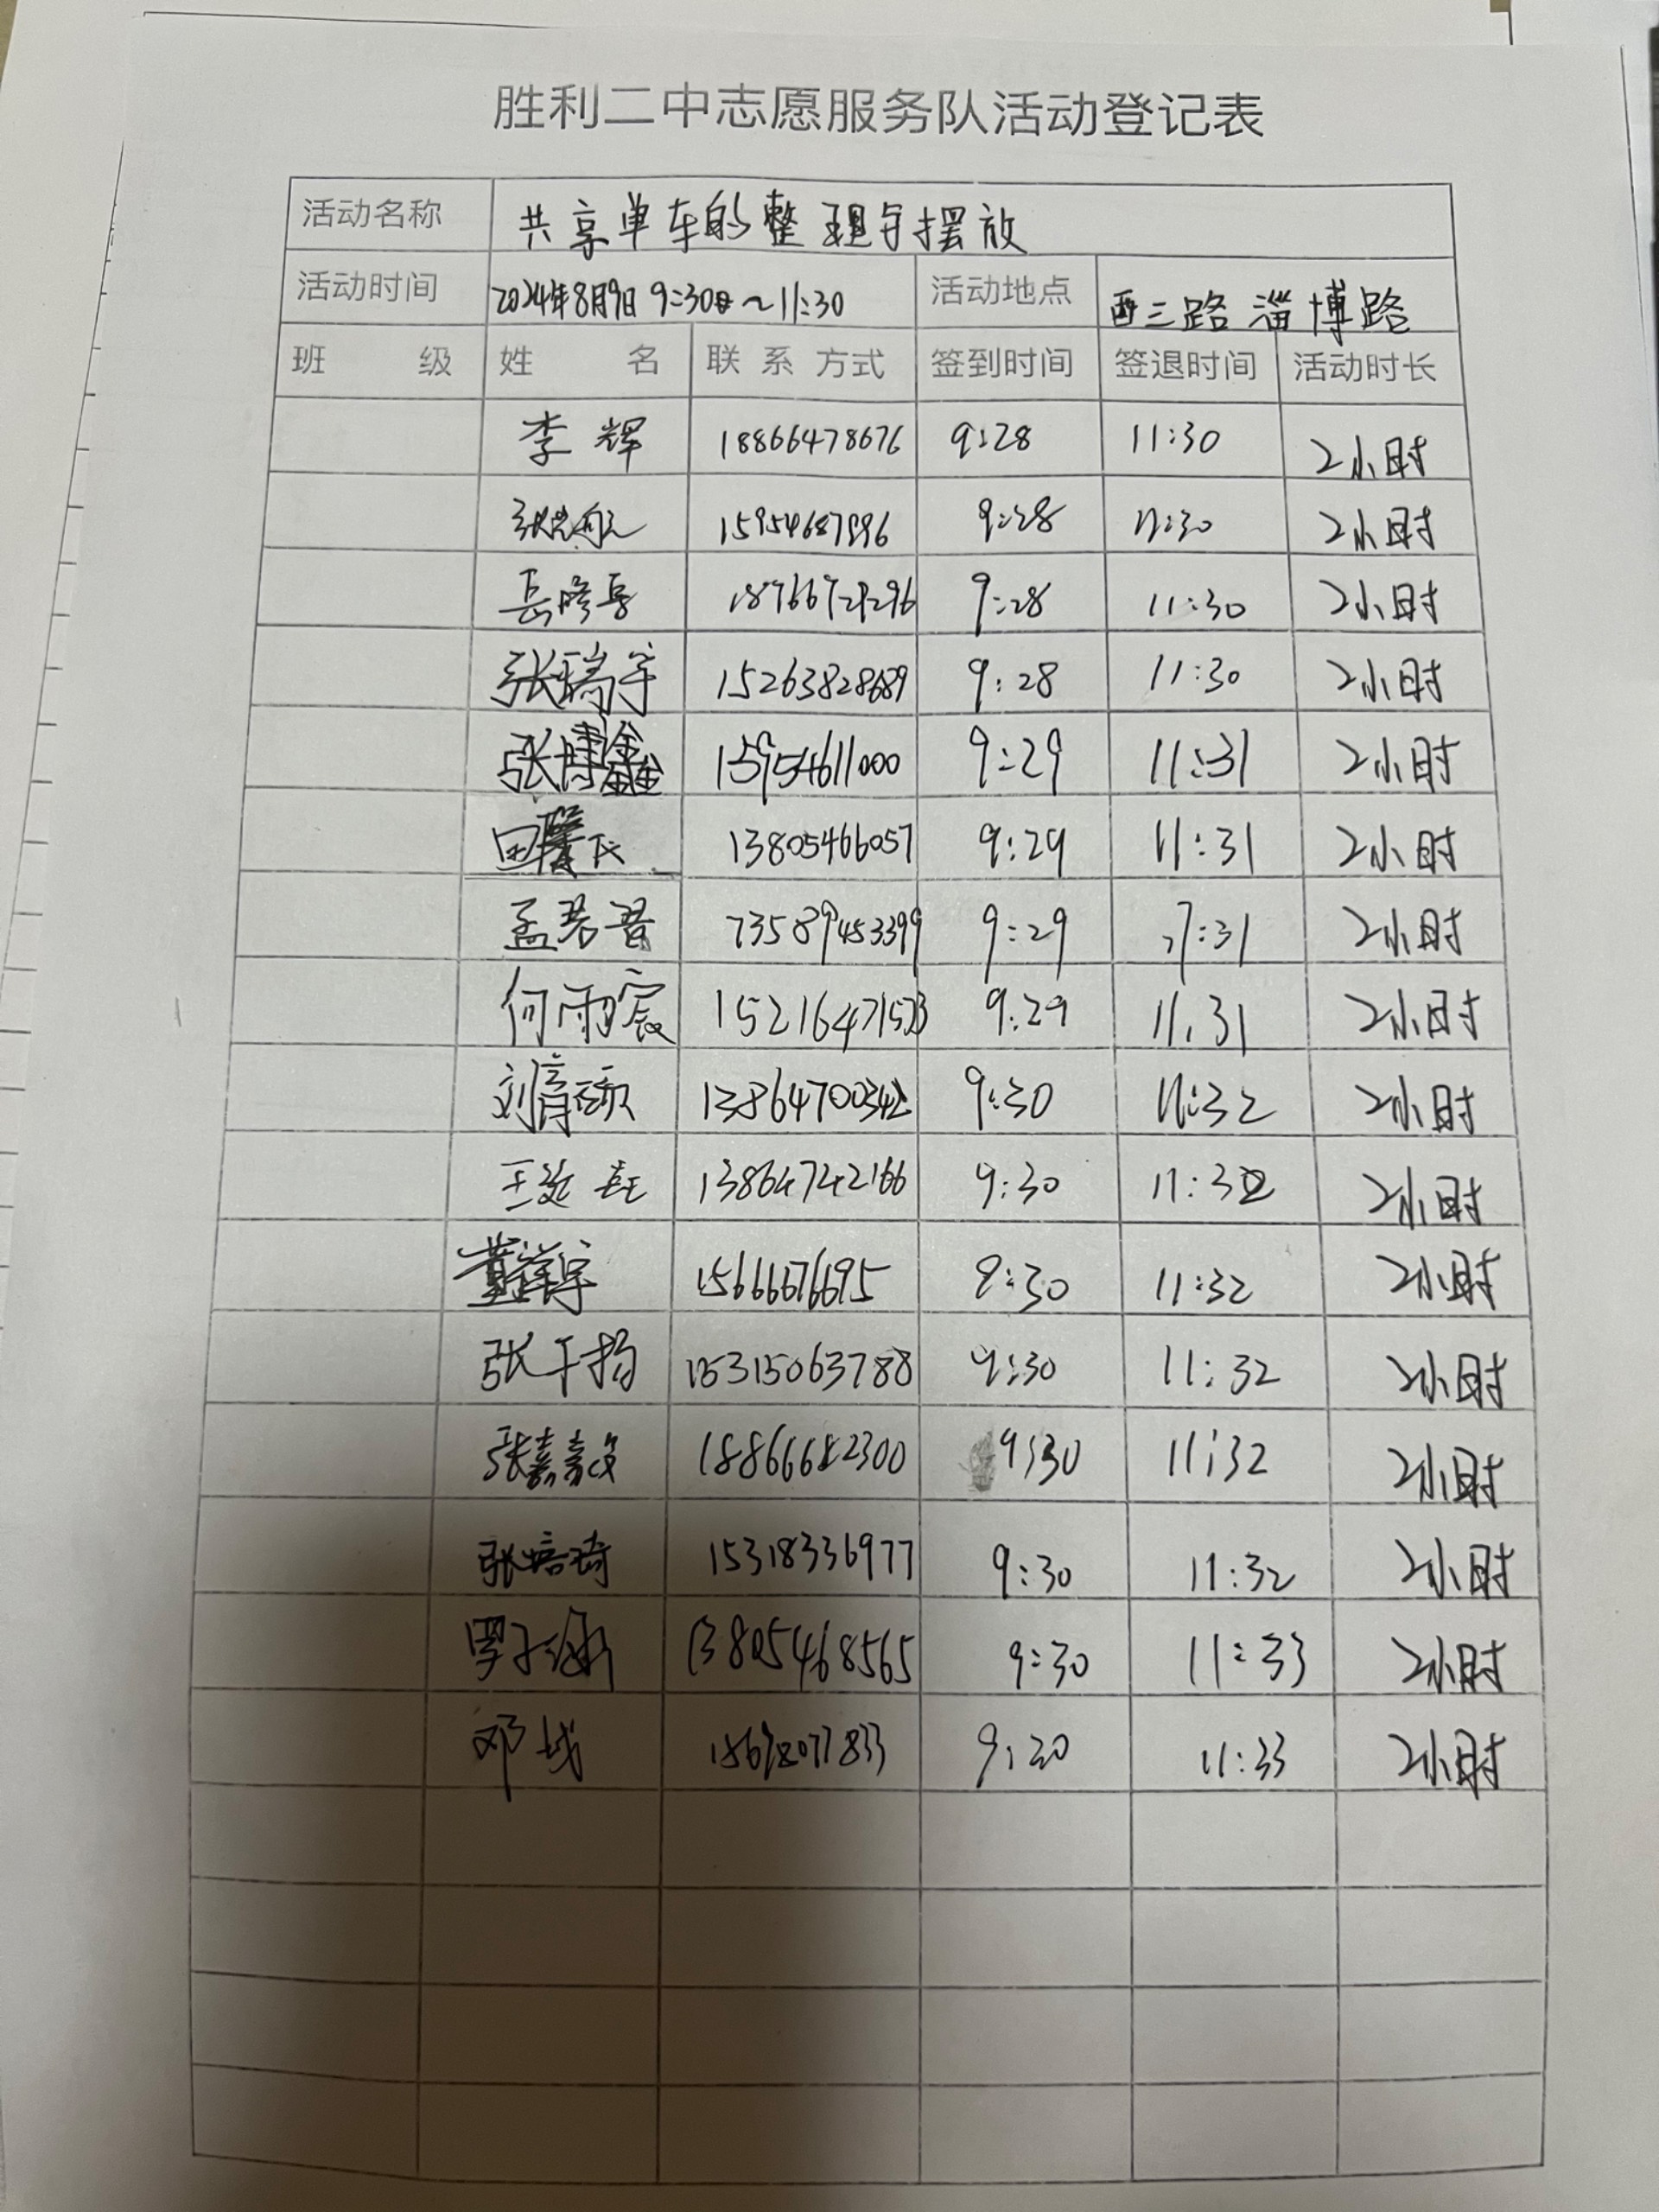 胜利二中志愿服务队活动登记表
活动名称 共享单车的整理与摆放
活动时间 2024年8月9日 9:30 ~ 11:30 活动地点 西三路淄博路
班 级 姓 名 联系方式 签到时间 签退时间 活动时长
李辉 18866478676 9:28 11:30 2小时
9:28 11:30 2小时
9:28 11:30 2小时
张瑞宇 15263828689 9:28 11:30 2小时
张博鑫 15954611000 9:29 11:31 2小时
13805466057 9:29 11:31 2小时
孟君 9:29 11:31 2小时
何雨宸 9:29 11:31 2小时
刘育硕 9:30 11:32 2小时
13864742166 9:30 11:32 2小时
董祥宇 15666676695 9:30 11:32 2小时
张千扬 15315063788 9:30 11:32 2小时
张嘉 9:30 11:32 2小时
张培琦 15318336977 9:30 11:32 2小时
13805468565 9:30 11:33 2小时
邓 9:30 11:33 2小时